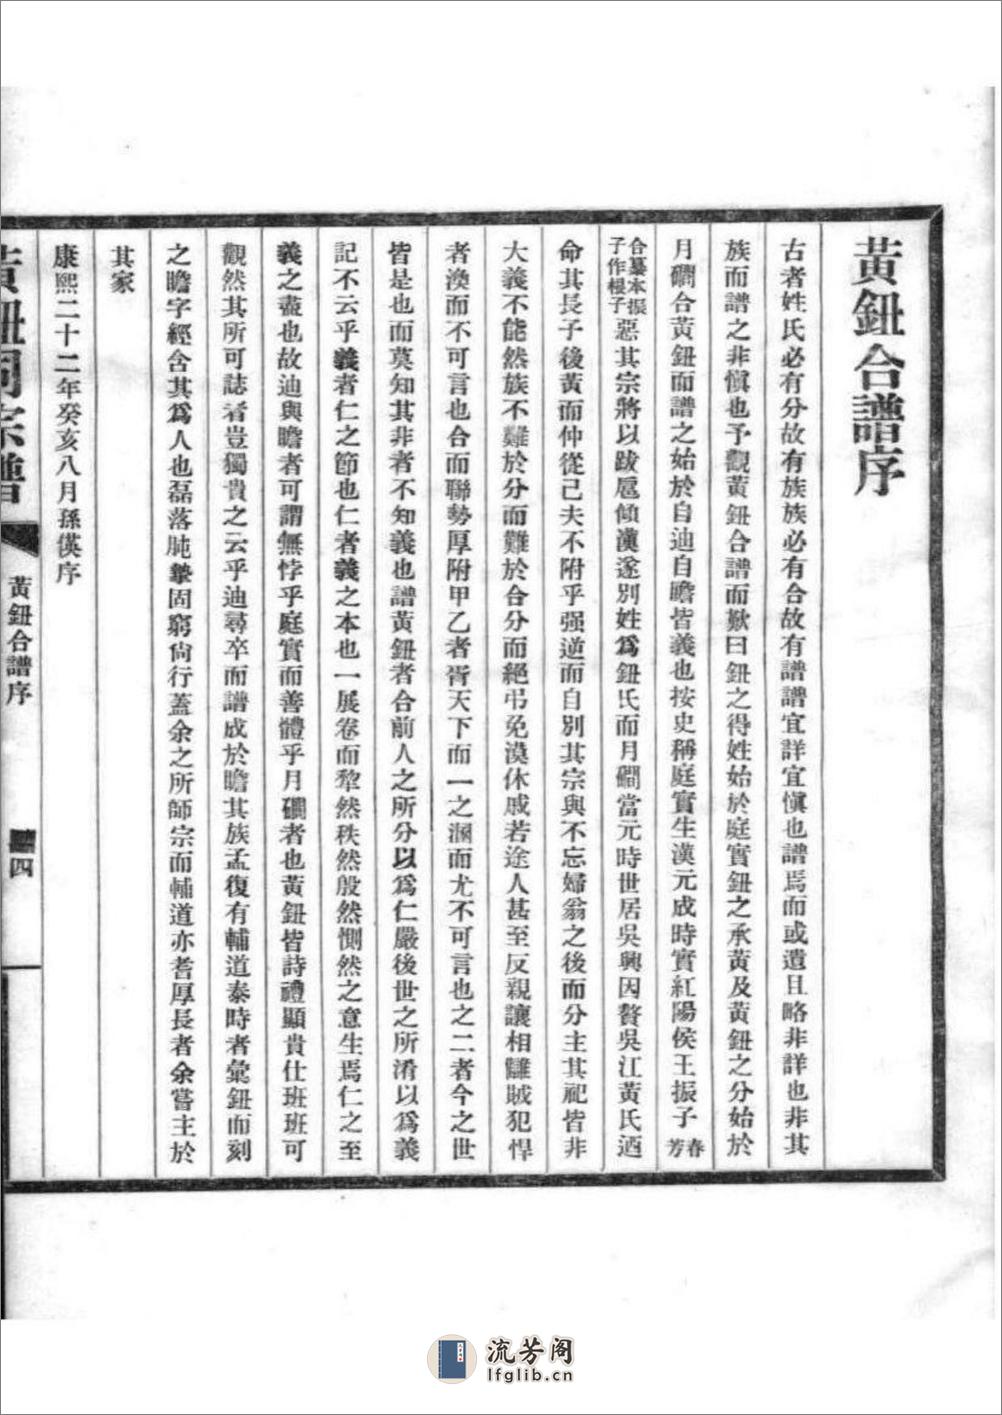 黃鈕合譜序
古者姓氏必有分故有族族必有合故有譜譜宜詳宜愼也譜焉而或遺且略非詳也非其
族而譜之非愼也予觀黃鈕合譜而歎曰鈕之得姓始於庭實鈕之承黃及黃鈕之分始於
月磵合黃鈕而譜之始於自迪自瞻皆義也按史稱庭實生漢元成時實紅陽侯王振子春芳
合纂本振子作根子惡其宗將以跋扈傾漢遂別姓爲鈕氏而月磵當元時世居吳興因贅吳江黃氏迺
命其長子後黃而仲從己夫不附乎强逆而自別其宗與不忘婦翁之後而分主其祀皆非
大義不能然族不難於分而難於合分而絕弔免漠休戚若途人甚至反親讓相讎賊犯悍
者渙而不可言也合而聯勢厚附甲乙者胥天下而一之溷而尤不可言也之二者今之世
皆是也而莫知其非者不知義也譜黃鈕者合前人之所分以爲仁嚴後世之所淆以爲義
記不云乎義者仁之節也仁者義之本也一展卷而犂然秩然殷然惻然之意生焉仁之至
義之盡也故迪與瞻者可謂無悖乎庭實而善體乎月磵者也黃鈕皆詩禮顯貴仕班班可
觀然其所可誌者豈獨貴之云乎迪尋卒而譜成於瞻其族孟復有輔道泰時者彙鈕而刻
之瞻字經含其爲人也磊落肫摯固窮尙行蓋余之所師宗而輔道亦耆厚長者余嘗主於
其家
康熙二十二年癸亥八月孫偀序
黃鈕同宗譜
黃鈕合譜序
四
流芳阁
lfglib.cn